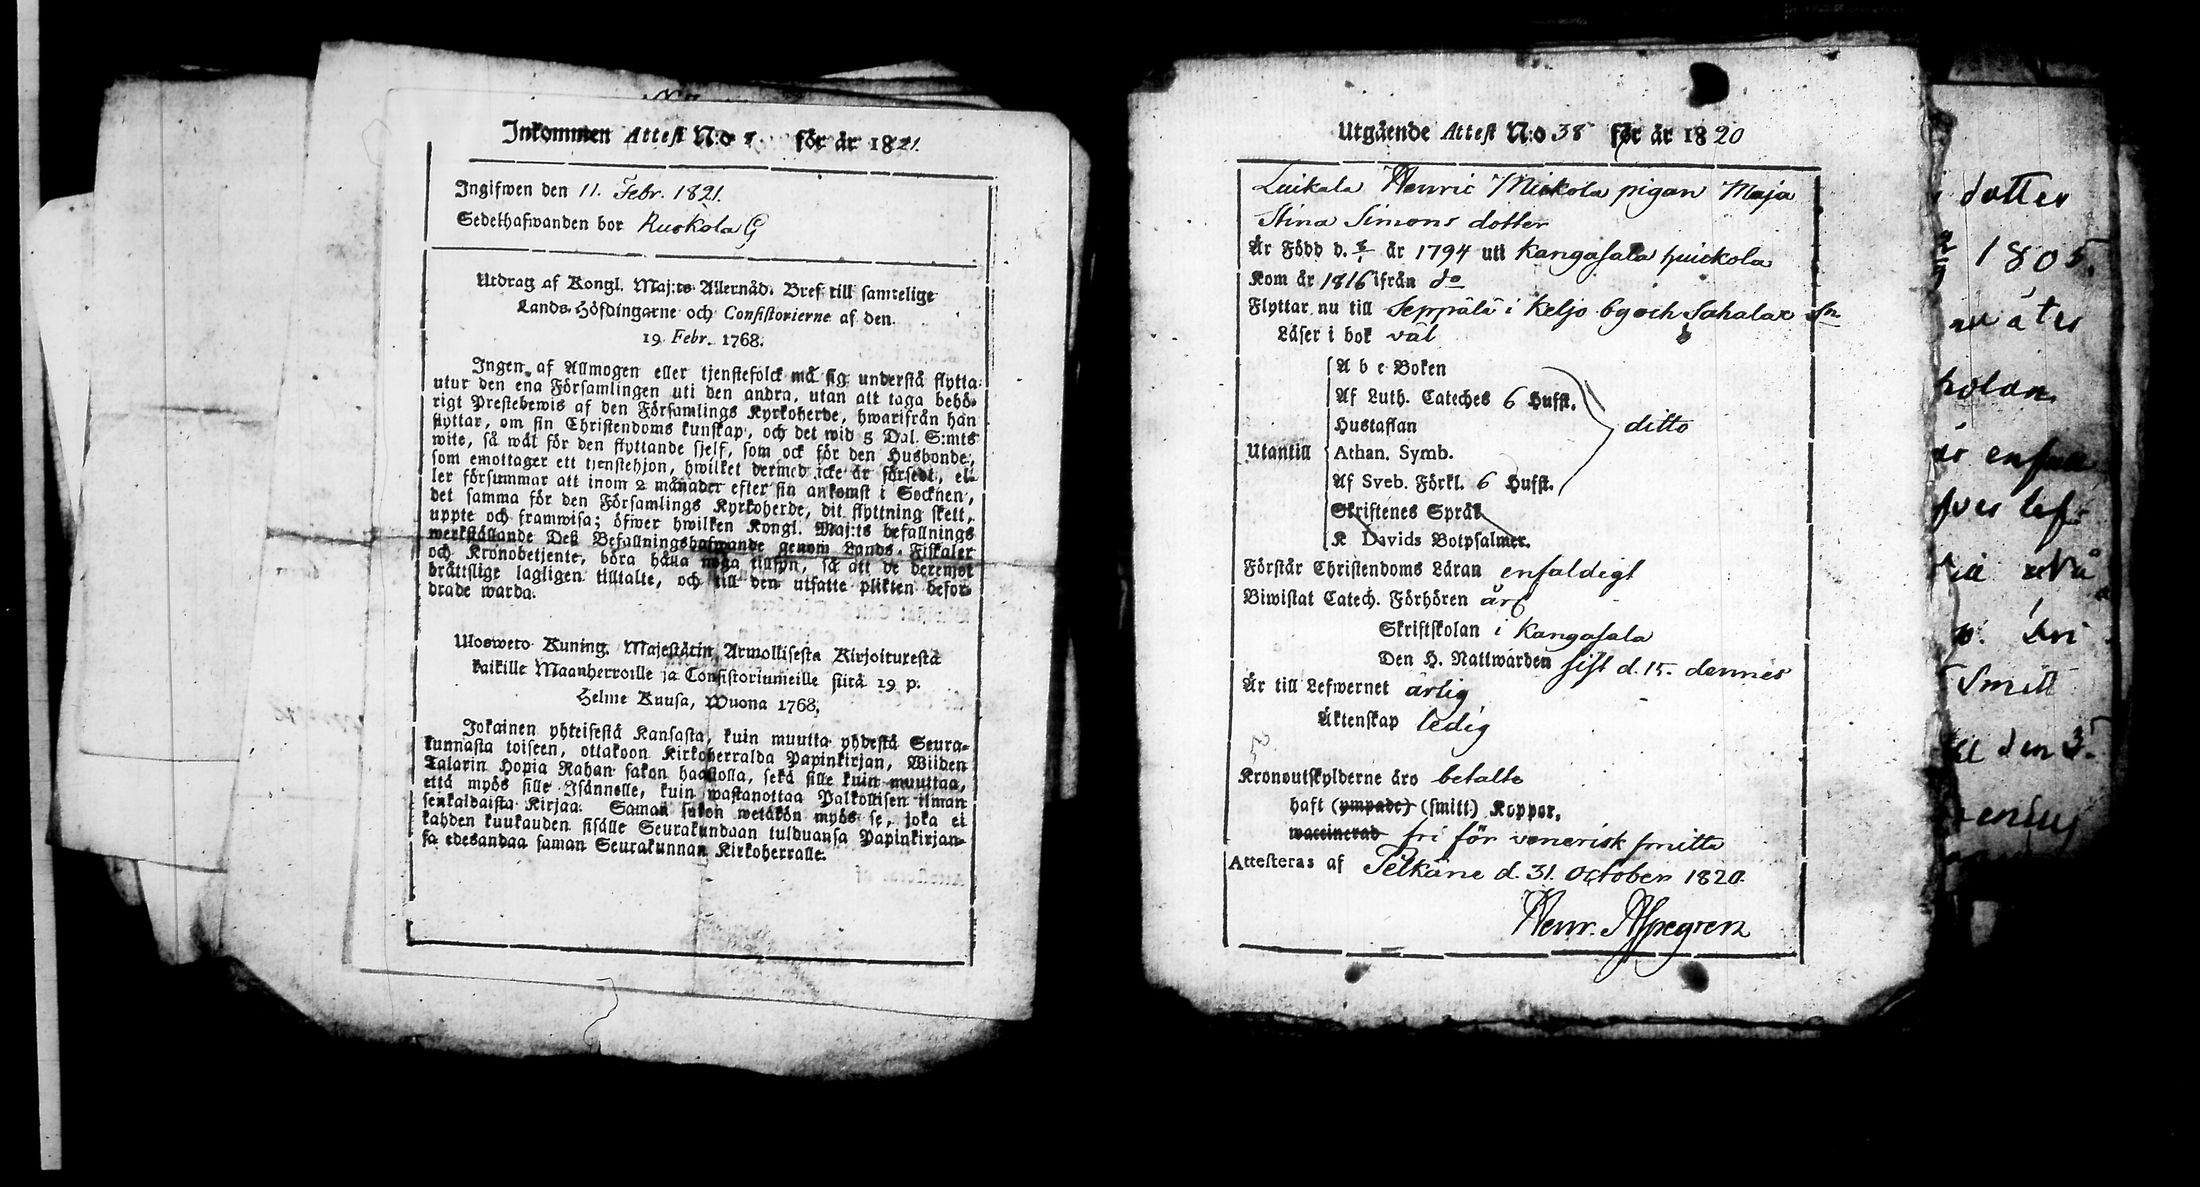 Inkommen Attest N:o för år 1821.
Ingifwen den 11. Febr. 1821.
Sedelhafwanden bor Ruokola G
Utdrag af Kongl. Maj:ts Allernåd. Bref till samtelige
Lands-Höfdingarne och Consistorierne af den
19 Febr. 1768.
Ingen af Allmogen eller tjenstefolck må sig understå flytta
utur den ena Församlingen uti den andra, utan att taga behö-
rigt Prestebewis af den Församlings Kyrkoherde, hwarifrån han
flyttar, om sin Christendoms kunskap, och det wid 5 Dal. S:mts
wite, så wäl för den flyttande sjelf, som ock för den Husbonde,
som emottager ett tjenstehjon, hwilket dermed icke är försedt, el-
ler försummar att inom 2 månader efter sin ankomst i Socknen,
det samma för den Församlings Kyrkoherde, dit flyttning skett,
uppte och framwisa; öfwer hwilken Kongl. Maj:ts befallnings
werkställande Deß Befallningshafwande genom Lands-Fiskaler
och Kronobetjente, böra hålla noga tillsyn, så att de deremot
bråttslige lagligen tilltalte, och till den utsatte plikten befor-
drade warda.
Ulosweto Kuning. Majestätin Armollisesta Kirjoituresta
kaikille Maanherroille ja Consistoriumeille siitä 19 p.
Helme Kuusa, Wuona 1768,
Jokainen yhteisestä Kansasta, kuin muutta yhdestä Seura-
kunnasta toiseen, ottakoon Kirkoherralda Papinkirjan, Wiiden
Talarin Hopia Rahan sakon haastolla, sekä sille kuin muuttaa,
että myös sille Isännelle, kuin wastanottaa Palkollisen ilman
senkaldaista Kirjaa. Saman sakon wetäkön myös se, joka ei
kahden kuukauden sisälle Seurakundaan tulduansa Papinkirjan-
sa edesandaa saman Seurakunnan Kirkoherralle.
Utgående Attest N:o 38 för år 1820
Luikala Henric Mickola pigan Maja
Stina Simons dotter
Är Född d. år 1794 uti Kangasala Huickola
Kom år 1816 ifrån do
Flyttar nu till Seppälä i Keljo by och Sahalax Sn
Läser i bok väl
A b c Boken
Af Luth. Cateches 6 Hufst.
Hustaflan ditto
Utantill Athan. Symb.
Af Sveb. Förkl. 6 Hufst.
Skriftenes Språk
K Davids Botpsalmer.
Förstår Christendoms Läran enfaldigt
Biwistat Catech. Förhören årl
Skriftskolan i Kangasala
Den H. Nattwarden sist d. 15. dennes
Är till Lefwernet ärlig
Äktenskap ledig
Kronoutskylderne äro betalte
haft (ympade) (smitt) Koppor.
waccinerad fri för venerisk smitta
Attesteras af Pelkäne d. 31. October 1820.
Henr. Aspegren
dotter
1805.
den 3.